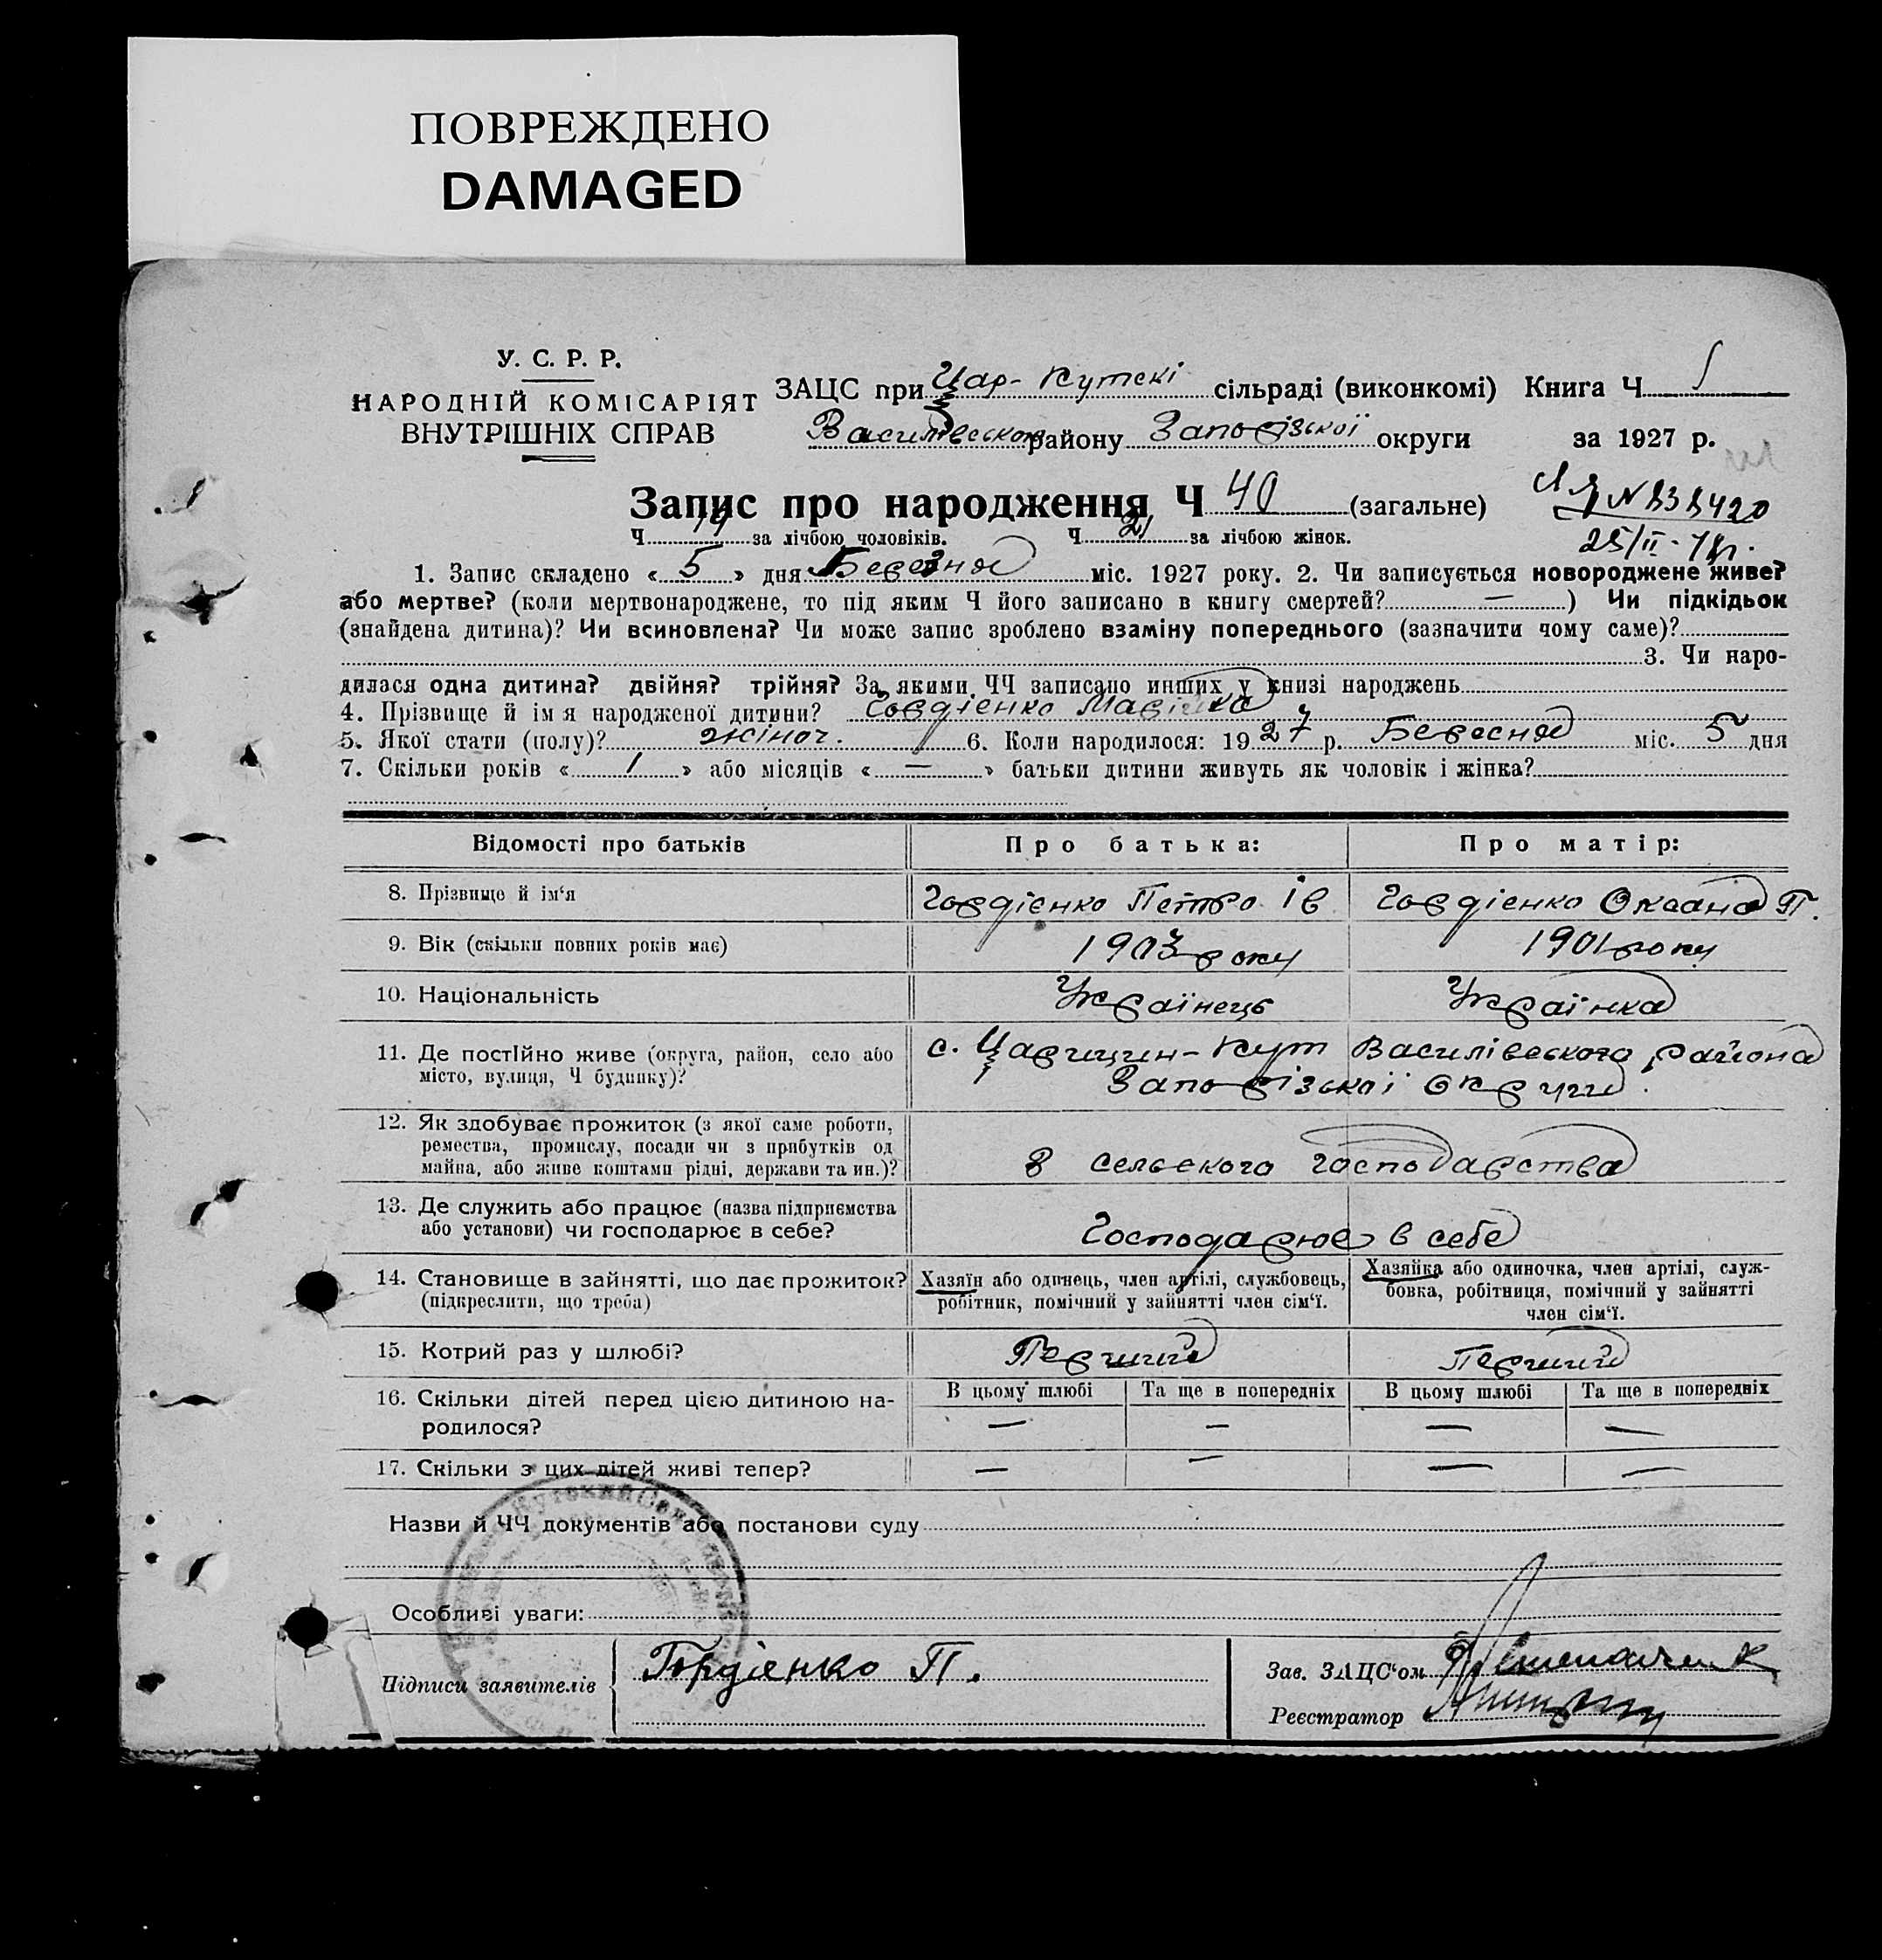 ПОВРЕЖДЕНО
DAMAGED
У. С. Р. Р.
НАРОДНІЙ КОМІСАРІЯТ
ВНУТРІШНІХ СПРАВ
ЗАЦС при Цар-Кутскі сільраді (виконкомі) Книга Ч.
Василівського району Запорізської округи за 1927 р.
Запис про народження Ч 40 (загальне)
Ч 19 за лічбою чоловіків. Ч 21 за лічбою жінок.
25/II-
1. Запис складено « 5 » дня Березня міс. 1927 року. 2. Чи записується новороджене живе?
або мертве? (коли мертвонароджене, то під яким Ч його записано в книгу смертей? — ) Чи підкідьок
(знайдена дитина)? Чи всиновлена? Чи може запис зроблено взаміну попереднього (зазначити чому саме)?
3. Чи наро-
дилася одна дитина? двійня? трійня? За якими ЧЧ записано инших у книзі народжень
4. Прізвище й імя народженої дитини? Гордіенко
5. Якої стати (полу)? жіноч. 6. Коли народилося: 1927 р. Березня міс. 5 дня
7. Скільки років « 1 » або місяців « — » батьки дитини живуть як чоловік і жінка?
Відомості про батьків Про батька: Про матір:
8. Прізвище й ім‘я Гордіенко Петро Ів Гордіенко Оксана П.
9. Вік (скільки повних років має) 1903 року 1901 року
10. Національність Українець Українка
11. Де постІйно живе (округа, район, село або с. Царицин-Кут Василівського района
місто, вулиця, Ч будинку)? Запорізської округи.
12. Як здобуває прожиток (з якої саме роботи,
ремества, промислу, посади чи з прибутків од
майна, або живе коштами рідні, держави та ин.)? З сельского господарства
13. Де служить або працює (назва підприємства
або установи) чи господарює в себе? Господарює в себе
14. Становище в зайнятті, що дає прожиток? Хазяїн або одинець, член артілі, службовець, Хазяйка або одиночка, член артілі, служ-
(підкреслити, що треба) робітник, помічний у зайнятті член сім‘ї. бовка, робітниця, помічний у зайнятті
член сім‘ї.
15. Котрий раз у шлюбі? Перший Перший
16. Скільки дітей перед цією дитиною на- В цьому шлюбі Та ще в попередніх В цьому шлюбі Та ще в попередніх
родилося? — — — —
17. Скільки з цих дітей живі тепер? — — — —
Назви й ЧЧ документів або постанови суду
Особливі уваги:
Підписи заявителів Гордіенко П. Зав. ЗАЦС‘ом
Реєстратор